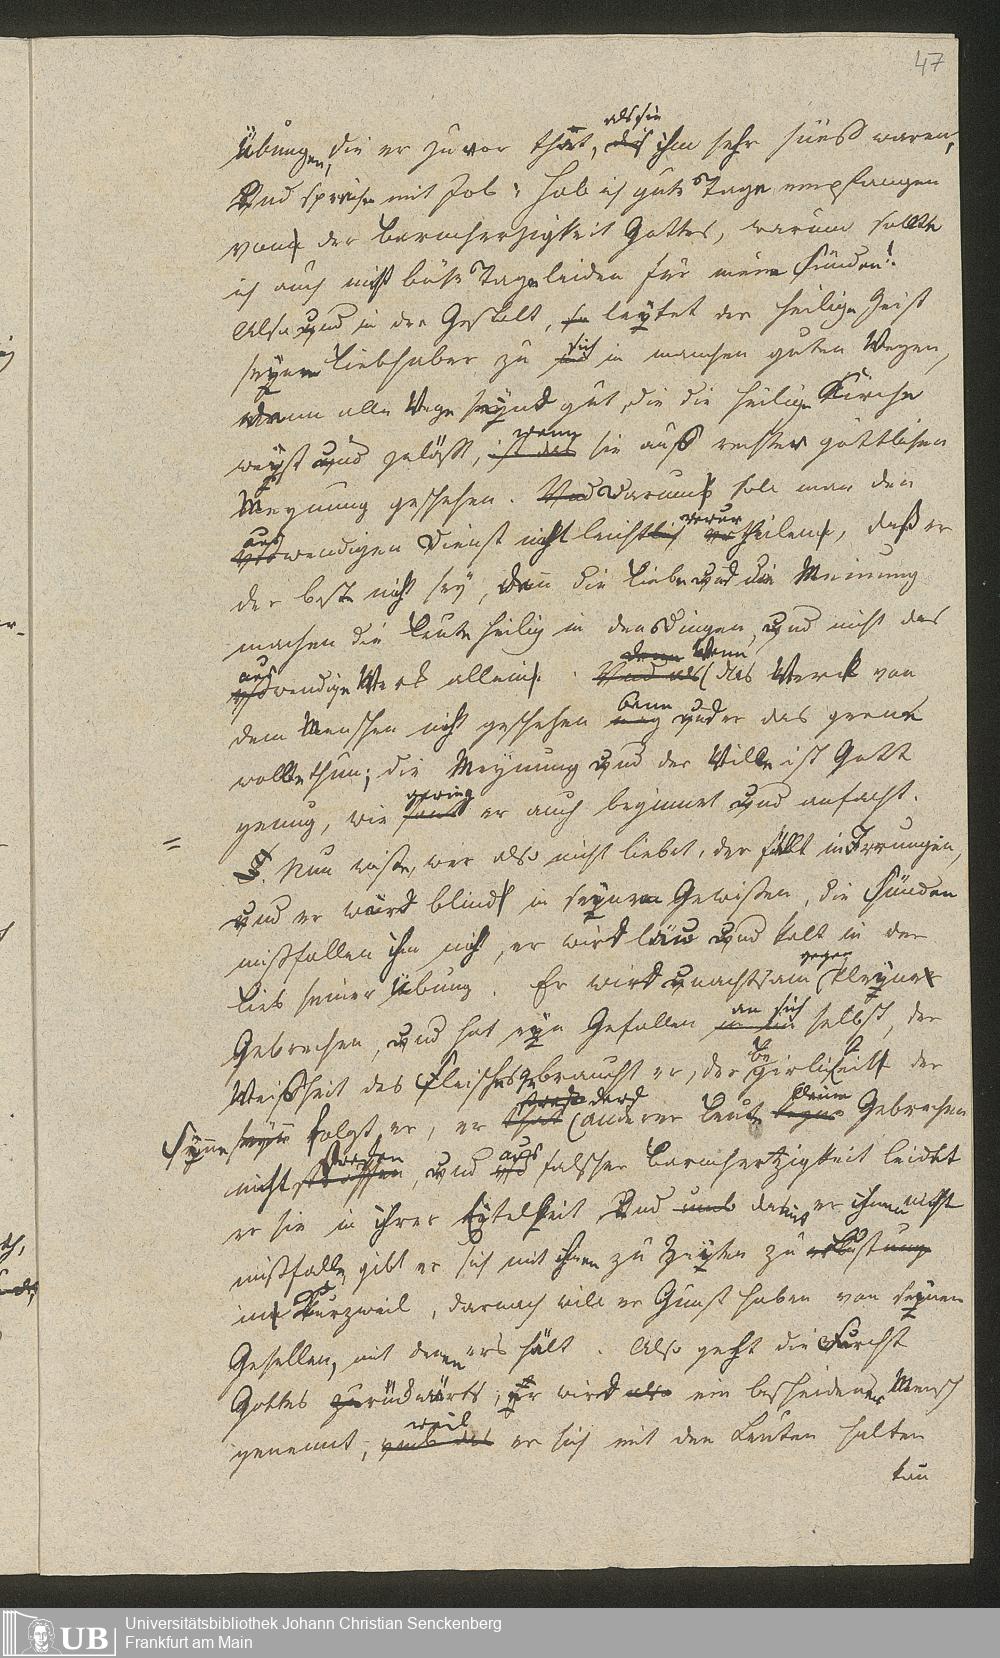 47
als sie
Übungen, die er zu vor thät, die ihm sehr süess waren,
Und sprich mit Job: Hab ich gute Tage empfangen
von der Barmherzigkeit Gottes, warum sollte
ich auch nicht böse Tage leiden für meine Sünden!
Also und in der Gestalt, so leytet der heilige Geist
seyne Liebhaber zu sich in manchen guten Wegen,
wann alle Wege seynd gut, die die heilige Kirche
weyst und gelässt, ist das wenn sie auß rechter göttlichen
Meynung geschehen. Und Darumb soll man den
auswendigen Dienst nicht leichtlich verurtheilen, daß er
der best nicht sey, denn die Liebe und die Meinung
machen die Leute heilig in den Dingen, und nicht das
auswendige Werk allein. Und als denn Wenn das Werck von
dem Menschen nicht geschehen mag kann und er das gerne
wollte thun; die Meynung und der Wille ist Gott
genug, wie gering er auch beginnet und anfacht.
=
§. Nun wisse, wer also nicht liebet, der fällt in Irrungen,
und er wird blind in seynem Gewissen, die Sünden
missfallen ihm nicht, er wird läw und kalt in der
Lieb seiner Übung. Er wird unachtsam gegen kleyne
Gebrechen, und hat eyn Gefallen an sich selbst, der
Weisheit des Fleisches gebraucht er, der begirlikeit der
Synne folgt er, er anderer Leut kleine Gebrechen
nicht strafen, und aus falscher Barmhertzigkeit leidet
er sie in ihrer Eytelkeit Und damit er ihnen nicht
missfalle, gibt er sich mit ihnen zu Zeyten zu Lust
in Kurzweil, darnach will er Gunst haben von seynen
Gesellen, mit denen ers hält. Also geht die Furcht
Gottes zurückwärts, er wird also ein bescheidener Mensch
genennt, weil er sich mit den Leuten halten
kan
UB
Universitätsbibliothek Johann Christian Senckenberg
Frankfurt am Main